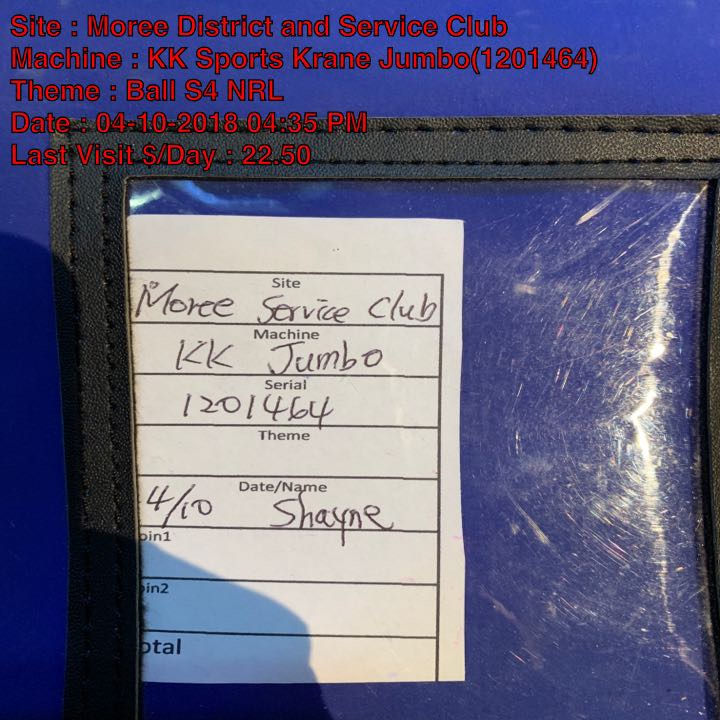 Site : Moree District and Service Club
Machine : KK Sports Krane Jumbo(1201464)
Theme : Ball S4 NRL
Date : 04-10-2018 04:35 PM
Last Visit $/Day : 22.50
Site
Moree Service Club
Machine
KK Jumbo
Serial
1201464
Theme
Date/Name
4/10 Shayne
oin1
oin2
otal